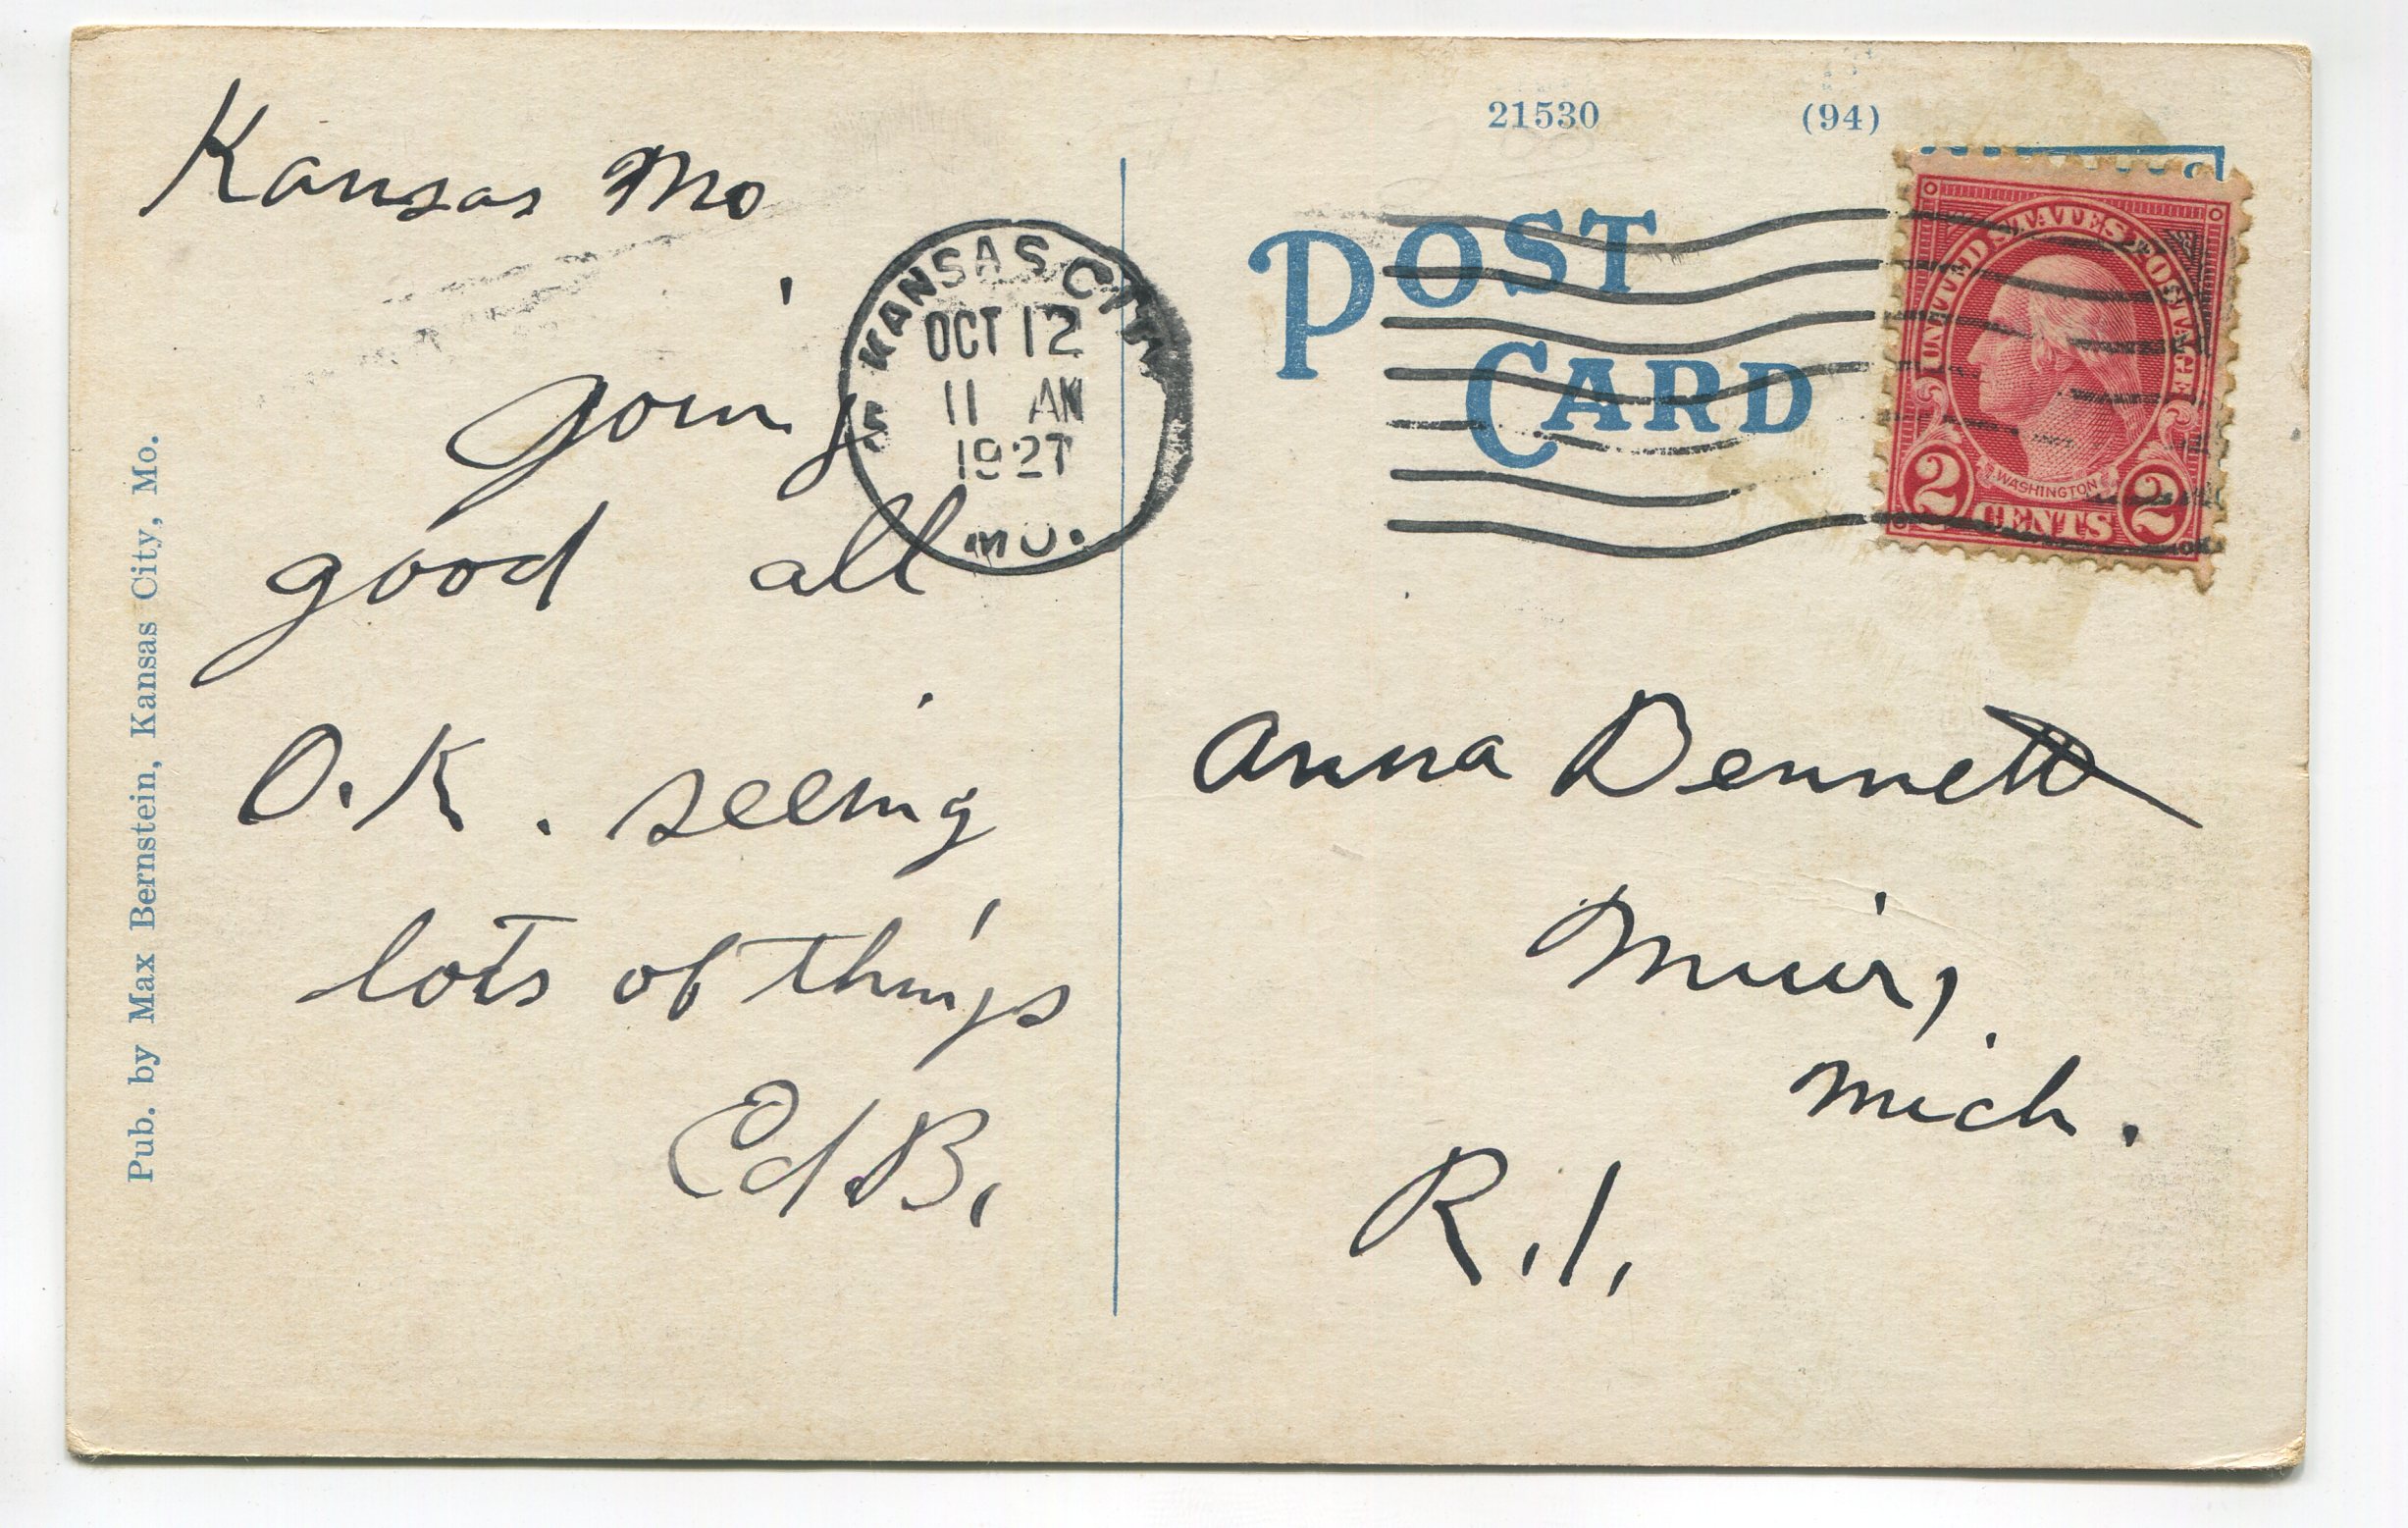 Kansas Mo
going
good all
O.K. seeing
lots of things
Ed B.
Pub. by Max Bernstein, Kansas City, Mo.
KANSAS CITY
OCT 12
11 AM
1927
MO.
21530 (94)
POST
CARD
UNITED STATES POSTAGE
WASHINGTON
2 CENTS 2
Anna Bennett
Muir,
Mich.
R.1.